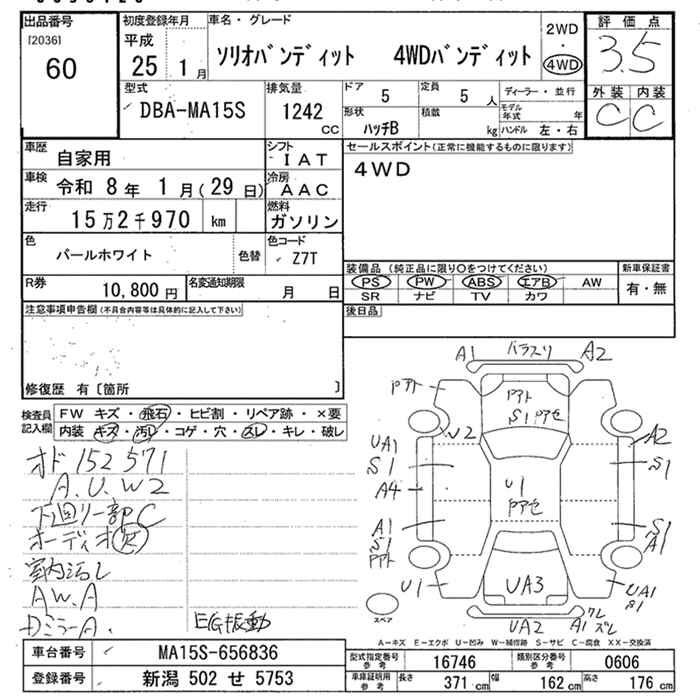 出品番号
[2036]
60
初度登録年月
平成
25 1月
車名・グレード
ソリオバンディット 4WDバンディット
2WD
・
4WD
評価点
3.5
外装 内装
C C
型式
DBA-MA15S
排気量
1242
cc
ドア
5
定員
5 人
ディーラー・並行
形状
ハッチB
積載
kg
モデル年式 年
ハンドル 左・右
車歴
自家用
シフト
IAT
車検
令和 8年 1月(29日)
冷房
AAC
走行
15万2千970 km
燃料
ガソリン
色
パールホワイト
色替
色コード
Z7T
R券
10,800円
名変通知期限
月 日
セールスポイント(正常に機能するものに限ります)
4WD
装備品(純正品に限り○をつけてください)
PS PW ABS エアB AW
SR ナビ TV カワ
新車保証書
有・無
後日品
注意事項申告欄(不具合内容等は具体的に記入して下さい)
修復歴 有〔箇所 〕
検査員
記入欄
FW キズ・飛石・ヒビ割・リペア跡・×要
内装・キズ・汚レ・コゲ・穴・スレ・キレ・破レ
オド152571
A.U.W2
下回リ一部C
オーディオ欠
室内汚レ
A.W.A
DミラーA.
EG振動
A1 バラスリ A2
Pアト
Pアト
S1 Pアセ
W2
UA1
S1
A4
A2
S1
U1
Pアセ
A1
S1
Pアト
S1
A1
U1
UA3
UA1
S1
スペア
UA2
A1 クレ
ズレ
A-キズ E-エクボ U-凹み W-補修跡 S-サビ C-腐食 XX-交換済
車台番号
MA15S-656836
登録番号
新潟 502 せ 5753
型式指定番号
参考
16746
類別区分番号
参考
0606
車庫証明用
参考
長さ
371 cm
幅
162 cm
高さ
176 cm